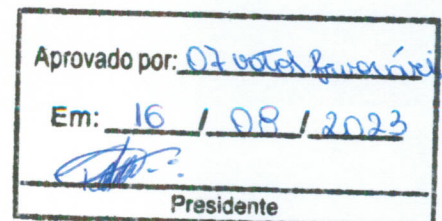 Aprovado por: 07 votos favoráveis
Em: 16 / 08 / 2023
Presidente